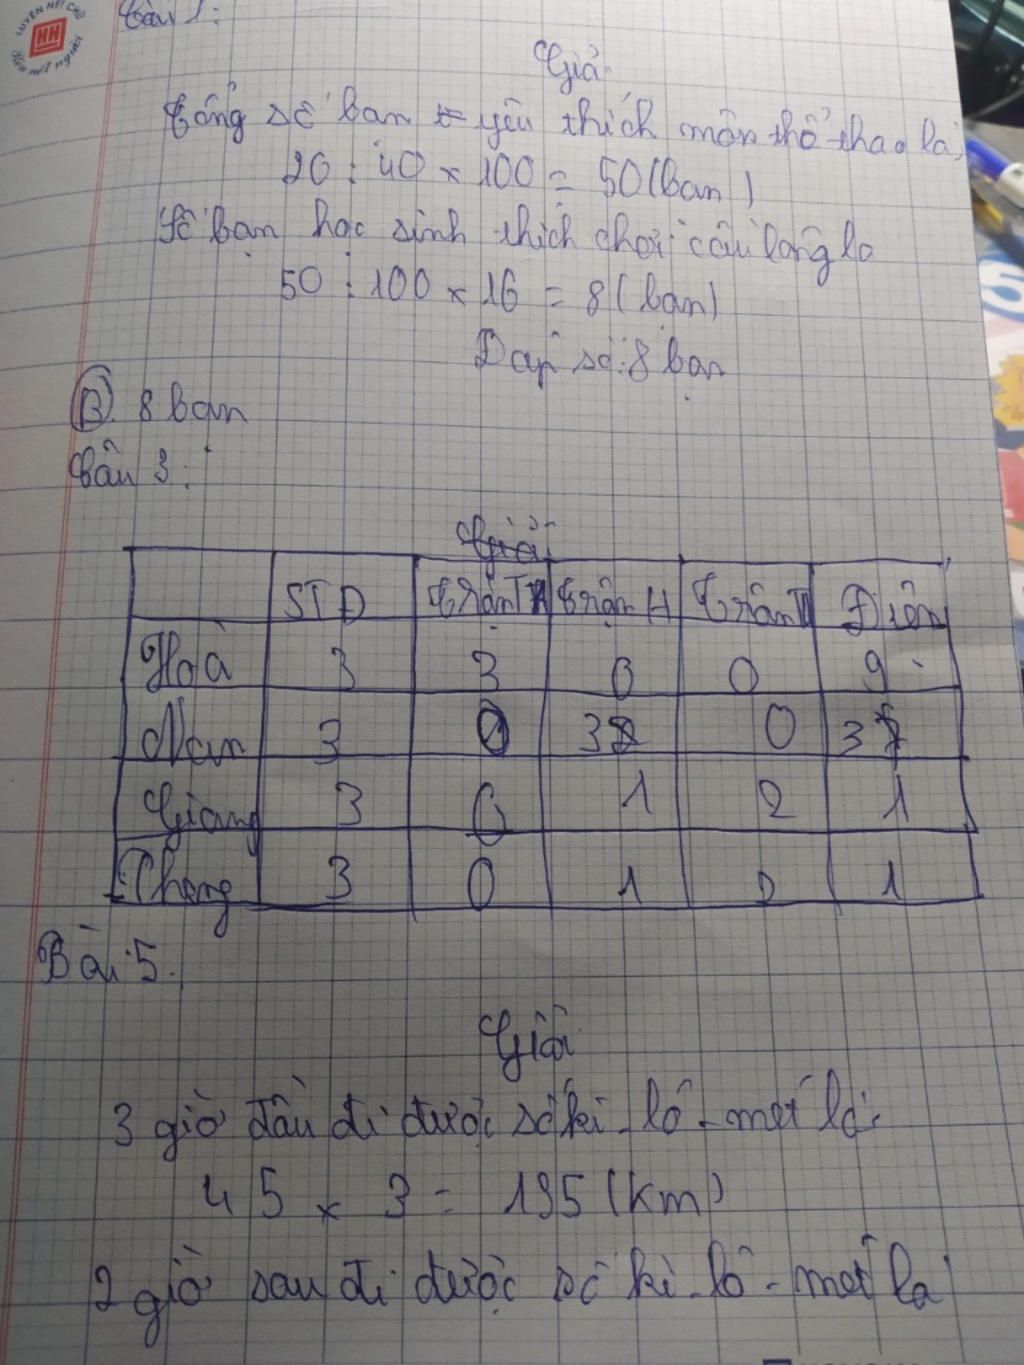 LUYỆN NÉT CHỮ
HH
Rèn nết người
Bài 1:
Giải
Tổng số bạn yêu thích môn thể thao là
20 : 40 x 100 = 50 (bạn)
Số bạn học sinh thích chơi cầu lông là
50 : 100 x 16 = 8 (bạn)
Đáp số: 8 bạn
B. 8 bạn
Bài 3:
Giải
STĐ Trận T Trận H Trận Điểm
Hoà 3 3 0 0 9
Nam 3 0 3 0 3
Giang 3 0 1 2 1
Thắng 3 0 1 2 1
Bài 5.
Giải
3 giờ đầu đi được số ki-lô-mét là:
45 x 3 = 135 (km)
2 giờ sau đi được số ki-lô-mét là